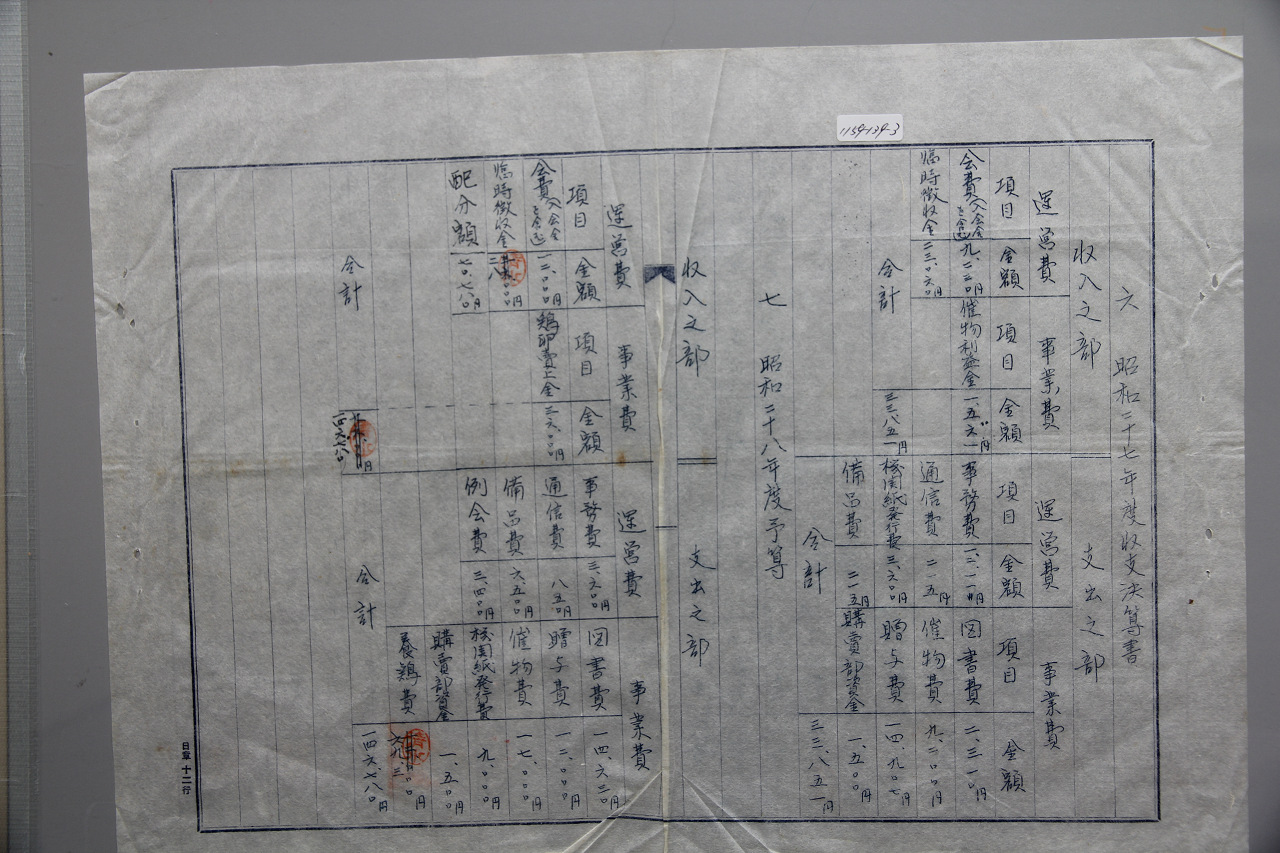 1154-134-3
六 昭和二十七年度収支決算書
収入之部 支出之部
運営費 事業費 運営費 事業費
項目 金額 項目 金額 項目 金額 項目 金額
会費入会金を含む 九、二二〇円 催物利益金 一、五六一円 事務費 図書費 二、三一〇円
臨時徴収金 二三、〇六〇円 通信費 二一五円 催物費 九、二〇〇円
合計 三三、八五一円 機関紙発行費 三、六〇〇円 贈与費 一四、九〇七円
備品費 二一五円 購買部資金 一、五〇〇円
合計 三三、八五一円
七 昭和二十八年度予算
収入之部 支出之部
運営費 事業費 運営費 事業費
項目 金額 項目 金額
会費入会金を含む 一二、〇〇〇円 鶏卵売上金 三六、〇〇〇 事務費 三、六〇〇円 図書費 一四、六二〇円
臨時徴収金 二八 〇〇〇円 通信費 八五〇円 贈与費 一二、〇〇〇円
配分額 七〇、七八〇円 備品費 六、五〇〇円 催物費 一七、〇〇〇円
例会費 三、四〇〇円 機関紙発行費 九、〇〇〇円
購買部資金 一、五〇〇円
養鶏費 円
合計 一四六七八〇円 合計 一四六七八〇円
日章 十二行